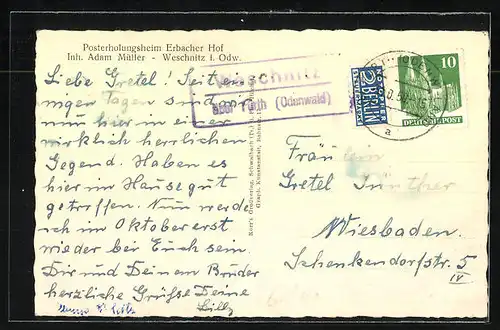 Posterholungsheim Erbacher Hof
Inh. Adam Müller - Weschnitz i. Odw.
Liebe Gretel! Seit eini-
gen Tagen sind wir
nun hier in einer
wirklich herrlichen
Gegend. Haben es
hier im Hause gut
getroffen. Nun werde
ich im Oktober erst
wieder bei Euch sein.
Dir und Deinem Bruder
herzliche Grüße Deine
Lilly
Weschnitz
über Fürth (Odenwald)
NOTOPFER
2 BERLIN
STEUERMARKE
10
DEUTSCHE POST
a
Fräulein
Gretel Günther
Wiesbaden
Schenkendorfstr. 5
IV